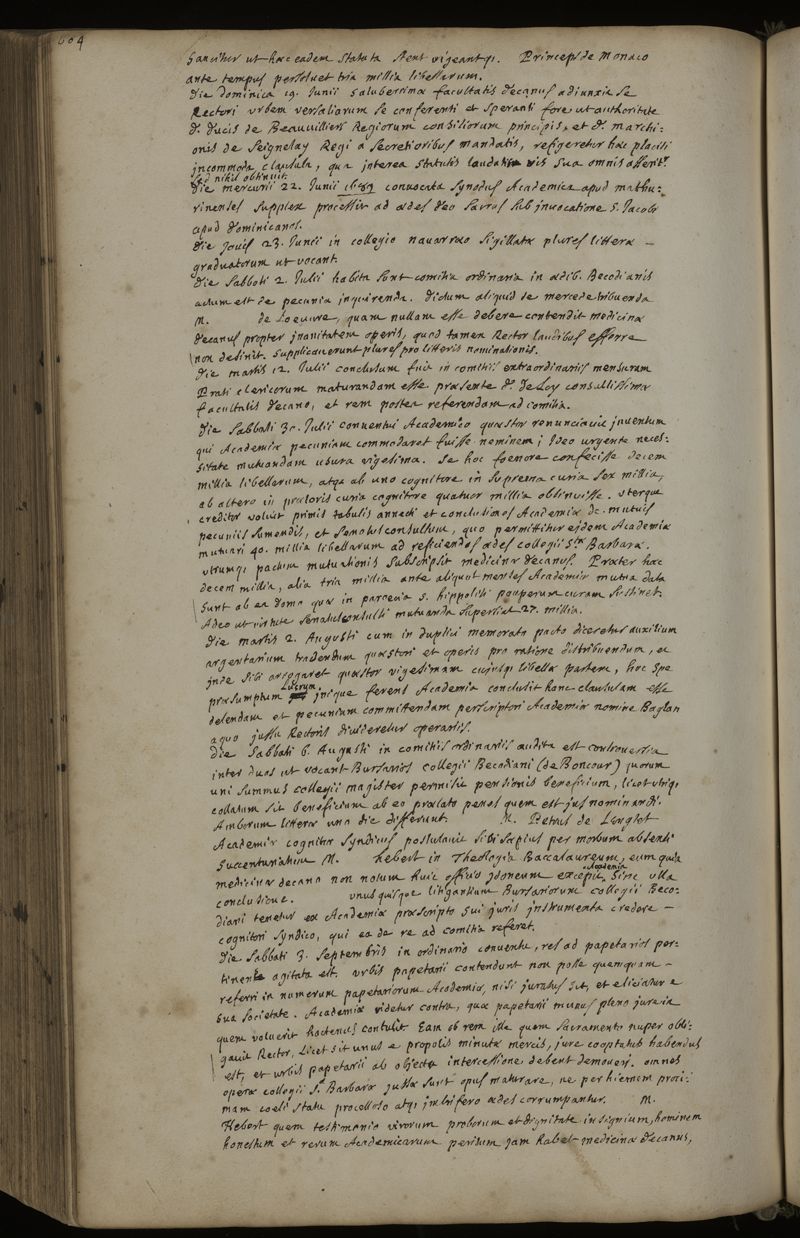 604
sancitur ut haec eadem statuta stent vigeantq. Princeps de Monaco
ante tempus persoluet tria millia libellarum.
die dominica 19. Junii saluberrimae facultatis decanus adiunxit se
Rectori urbem versaliarum se conferenti et speranti fore ut authoritate
d. ducis de Beauuilliers Regiorum consiliorum principis, et d. marchi-
onis de Seignelay Regi a secretioribus mandatis, refigeretur hac placiti
incommoda clausula, qua interea statutis laudatis vis sua omnis
sed nihil obtinuit.
die mercurii 22. Junii 1689 conuocata synodus Academica apud mathu:
rinenses supplex processit ad aedes deo sacras sub inuocatione S. Jacobi
apud dominicanos.
die Jouis 23. Junii in collegio nauarraeo sigillatae plures litterae -
graduatorum ut vocant.
die sabbati 2. Julii habita sunt comitia ordinaria in aedib. Becodianis
actum est de pecunia inquirenda. dictum aliquid de mercede tribuenda
M. de Loeuure, quam nullam esse debere contendit medicinae
decanus propter inanitatem operis, quod tamen Rector laudibus efferre
non desinit. supplicauerunt plures pro litteris nominationis.
die martis 12. Julii conclusum fuit in comitiis extraordinariis mensuram
Prati clericorum maturandam esse. praesente d. de Loy consultissimae
facultatis decano, et rem postea referendam ad comitia.
die sabbati 30. Julii conuentui Academico quaestor renunciauit inuentum
qui Academiae pecuniam commodaret fuisse neminem; ideo urgente neces:
sitate mutuandam usura vigesima. se hoc foenore confecisse decem
millia libellarum, atq. ab uno cognitore in suprema curia sex millia,
ab altero in praetoris curia cognitore quatuor millia obtinuisse. uterque
creditor voluit primis tabulis annecti et conclusiones Academiae de mutuis
pecuniis sumendis, et senatusconsultum, quo permittitur eidem Academiae
mutuari 40. millia libellarum ad reficiendos aedes collegii Stae Barbarae.
utrumq. pactum mutuationis subscripsit medicinae decanus. Praeter haec
decem millia, alia tria millia ante aliquot menses Academiae mutua data
sunt ab ea domo quae in paroecia S. hippoliti pauperum curam sustinet.
Adeo ut virtute senatusconsulti mutuanda supersint 27. millia.
die martis 2. Augusti cum in duplici memorato pacto diceretur auxilium
argentarium tradendum quaestori et operis pro ratione distribuendum, ac
inde sibi arrogaret quaestor vigesimam cuiusq. libellae partem, hoc spe
praesumptum lucrum inique ferens Academia conclusit hanc clausulam esse
delendam et pecuniam committendam perscriptori Academiae nomine Baglan
a quo jussu Rectoris diuideretur operariis.
die sabbati 6. Augusti in comitiis ordinariis audita est controuersia
inter duos ut vocant Bursarios collegii Becodiani (de Boncour) quorum
uni summus collegii magister permisit pensionis beneficium, licet utriq.
collatum sit beneficium ab eo praelato penes quem est jus nominandi.
Amborum litterae uno die differunt. M. Petrus de Lenglet
Academiae cognitor syndicus postulauit sibi saepius per morbum absenti
succenturiatum M. hebert in Theologia Baccalaureum, eum quia
medicinae decano non notum huic officio idoneum excepit Academia sine ulla
conclusione. unusquisque litigantium Bursariorum collegii Beco:
diani tenetur ex Academiae praescripto sui juris instrumenta credere -
cognitori syndico, qui ea de re ad comitia referet.
die sabbati 3. septembris in ordinario conuentu, res ad papetarios per:
tinente agitata est. urbis papetarii contendunt non posse quemquam -
referri in numerum papetariorum Academiae, nisi juratus sit, et eliciatur e
sua societate. Academiae videtur contra, quae papetarii munus pleno jure in
quem voluerit hactenus contulit. Eam ob rem ille quem sacramento nuper obli:
gauit Rector, licet sit unus e propolis minutae mercis, jure cooptatus habendus
est, et urbis papetarii ab objecta intercessione debent demoueri. omnes
operae collegii Sae Barbarae jussae sunt opus maturare, ne per hiemem proxi:
mam coeli statu procelloso atq. imbrifero aedes corrumpantur. M.
Hebert quem testimonio virorum proborum et dignitate insignium, hominem
honestum et rerum Academicarum peritum jam habet medicinae decanus,